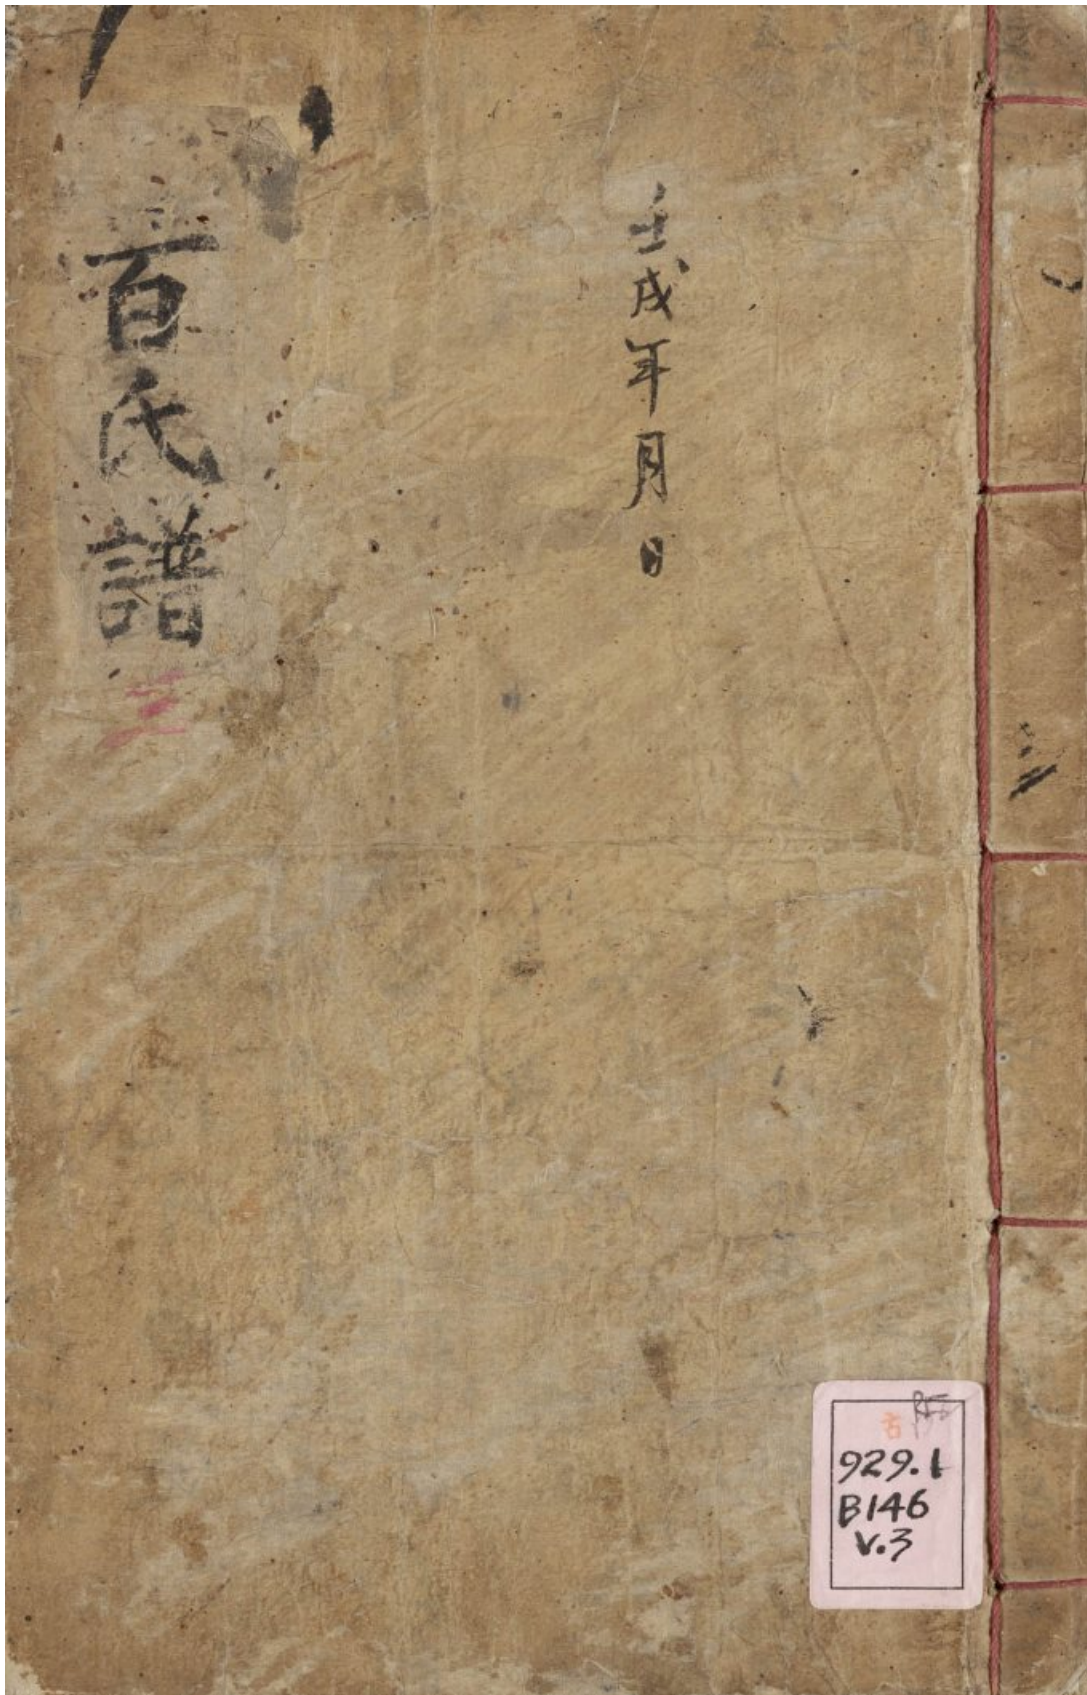 壬戌年月日
百氏譜
三
古
929.1
B146
V.3